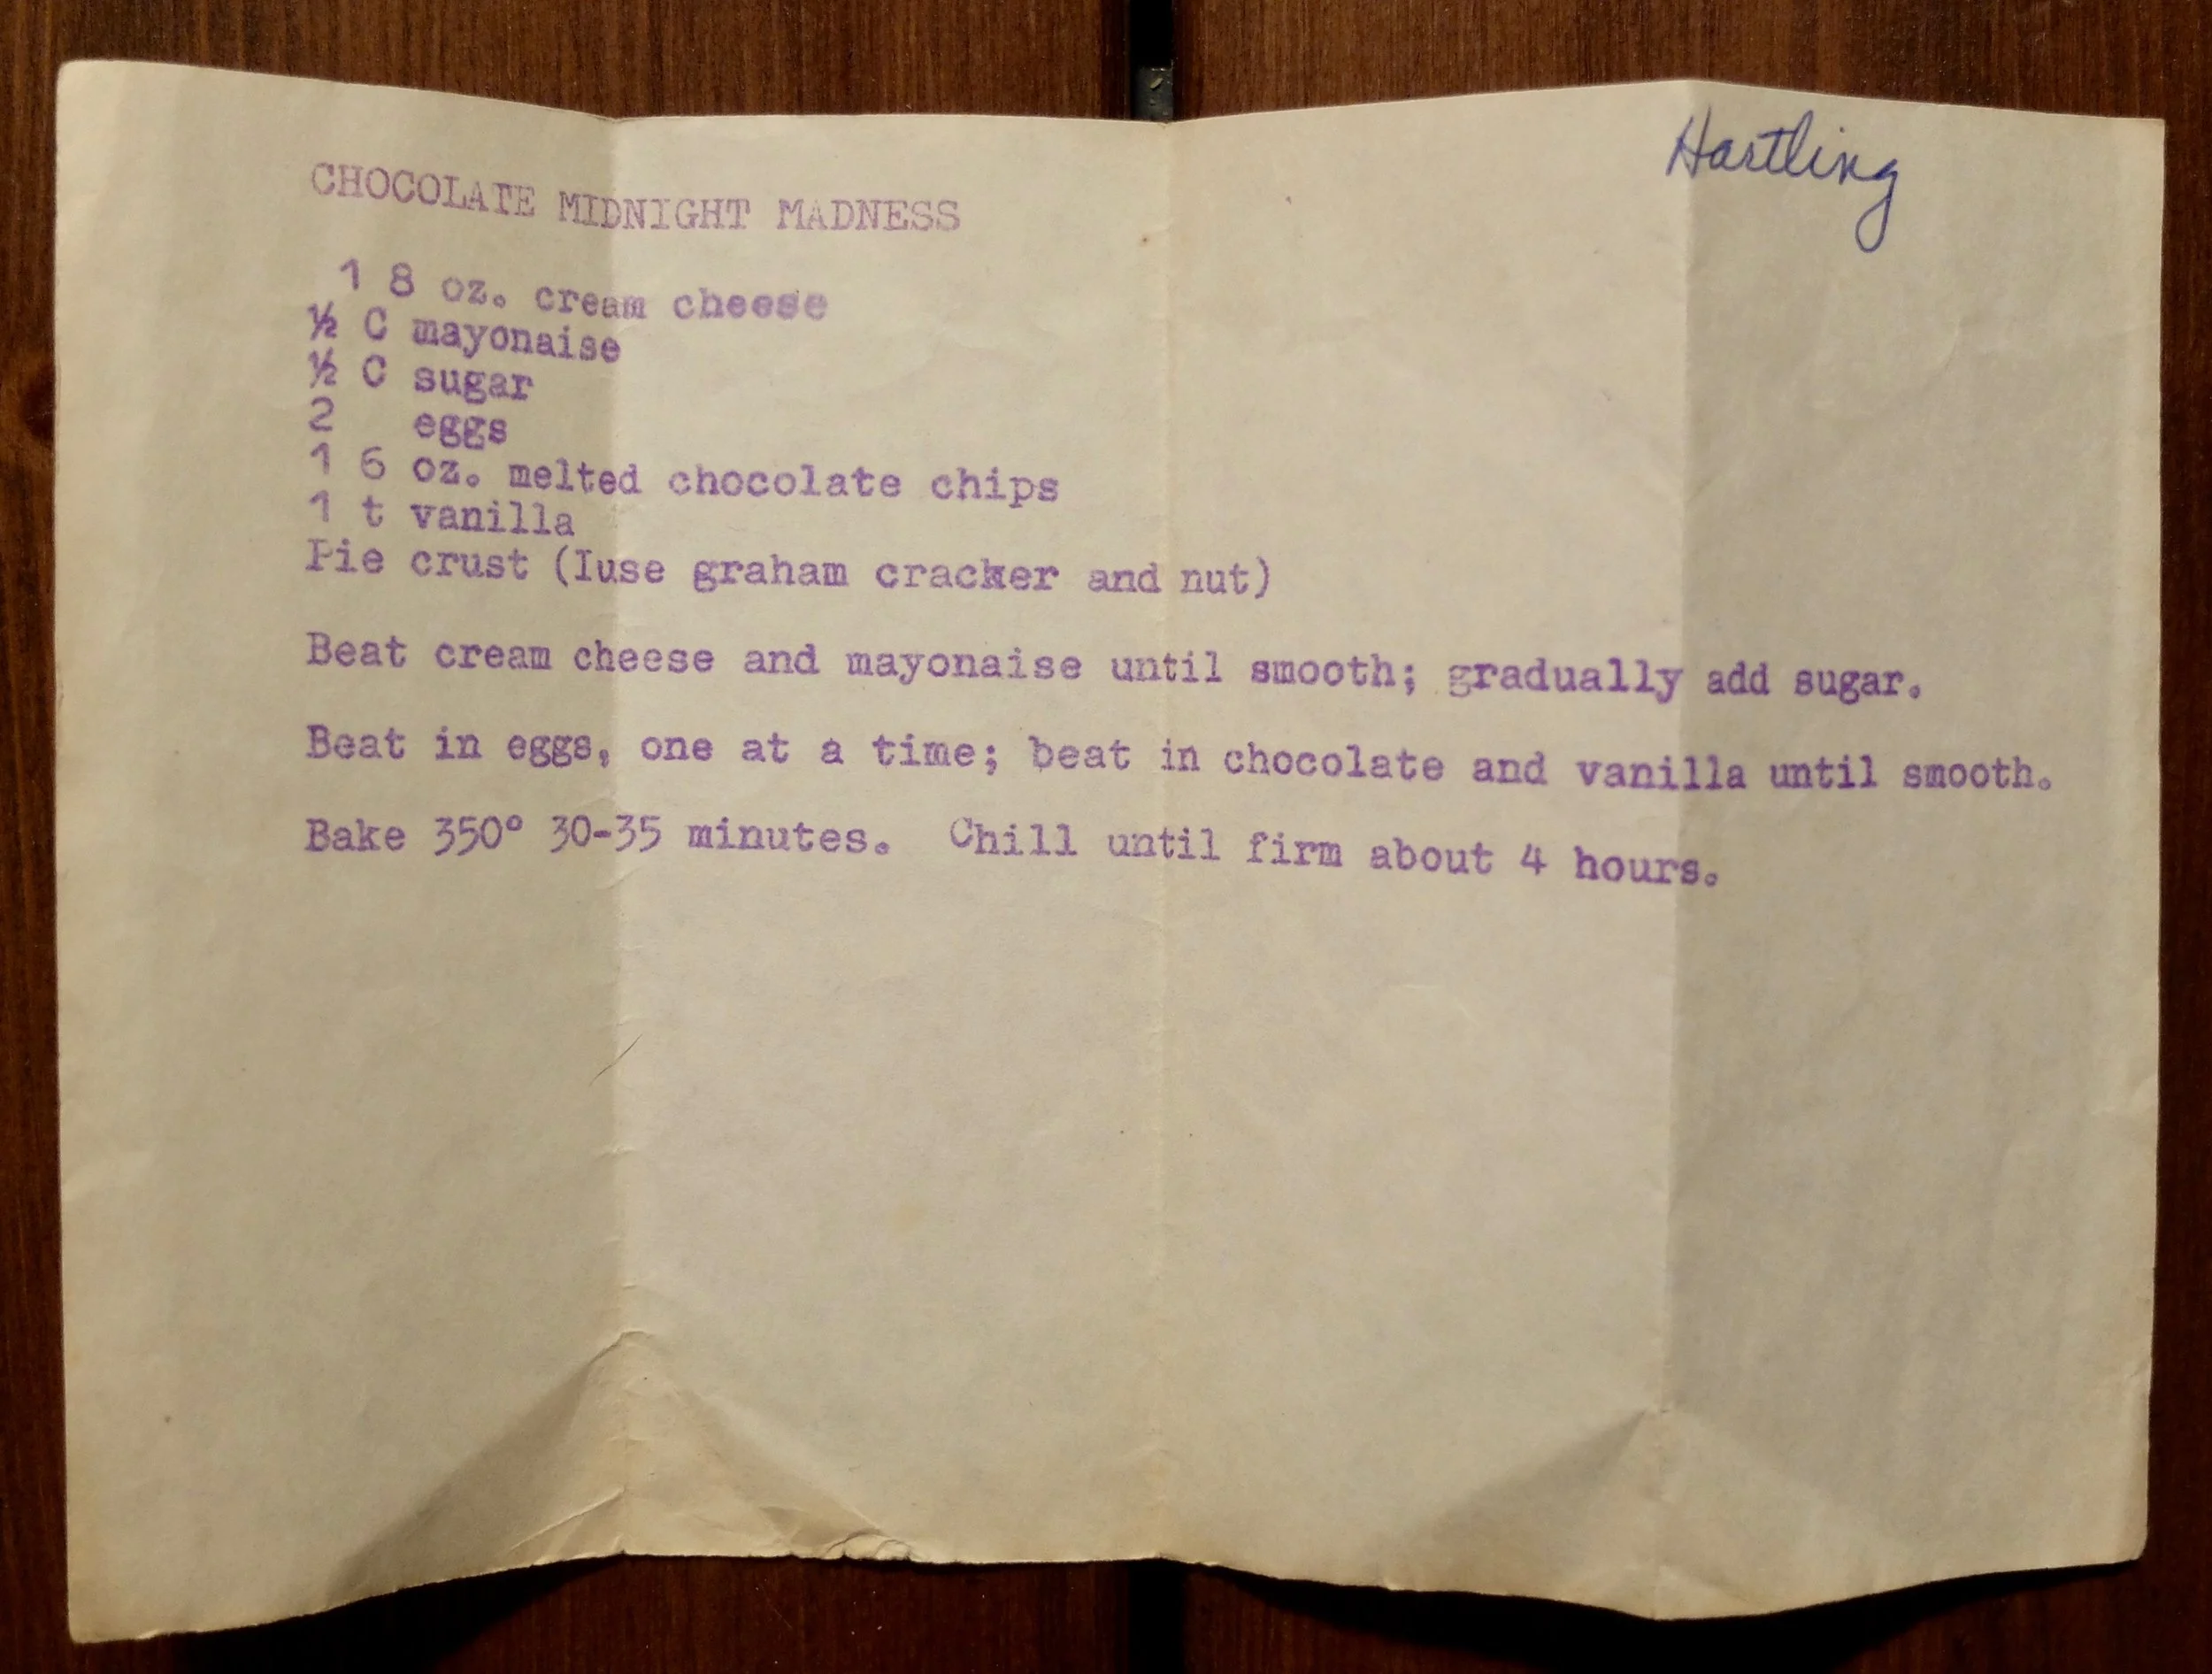 Hartling
CHOCOLATE MIDNIGHT MADNESS
1 8 oz. cream cheese
½ C mayonaise
½ C sugar
2 eggs
1 6 oz. melted chocolate chips
1 t vanilla
Pie crust (Iuse graham cracker and nut)
Beat cream cheese and mayonaise until smooth; gradually add sugar.
Beat in eggs, one at a time; beat in chocolate and vanilla until smooth.
Bake 350° 30-35 minutes. Chill until firm about 4 hours.